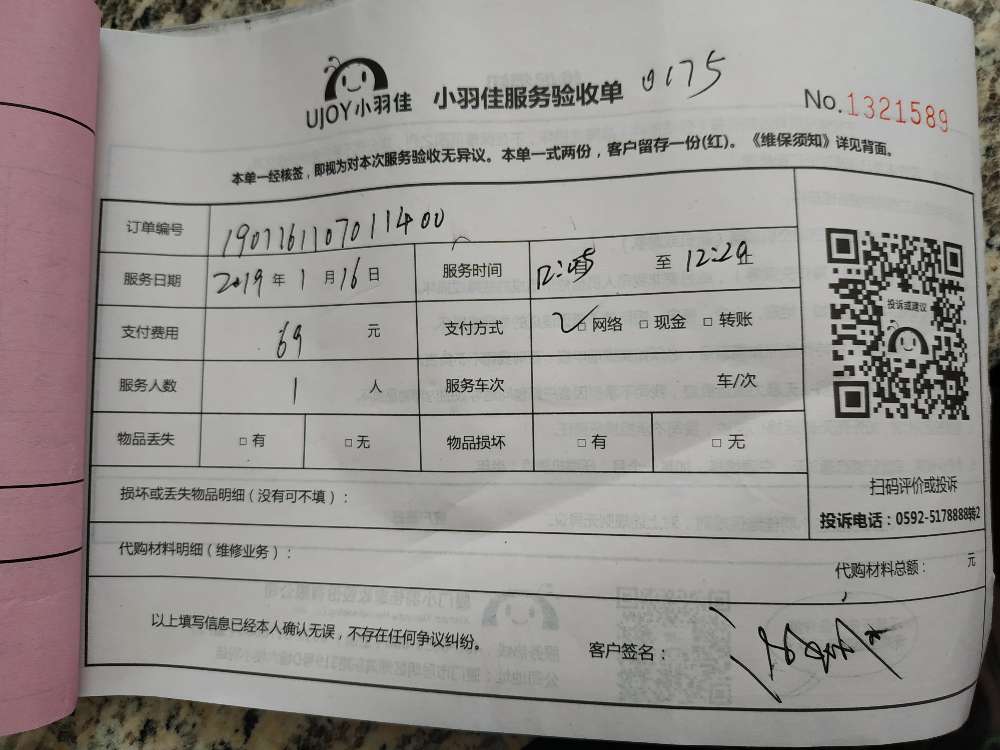 UJOY小羽佳 小羽佳服务验收单 0175
No.1321589
本单一经核签，即视为对本次服务验收无异议。本单一式两份，客户留存一份(红)。《维保须知》详见背面。
订单编号
服务日期 2019 年 1 月 16 日 服务时间 至 12:29
支付费用 69 元 支付方式 □网络 □现金 □转账
服务人数 1 人 服务车次 车/次
物品丢失 □有 □无 物品损坏 □有 □无
投诉或建议
扫码评价或投诉
投诉电话：0592-5178888转2
损坏或丢失物品明细（没有可不填）：
代购材料明细（维修业务）：
代购材料总额： 元
以上填写信息已经本人确认无误，不存在任何争议纠纷。
客户签名：